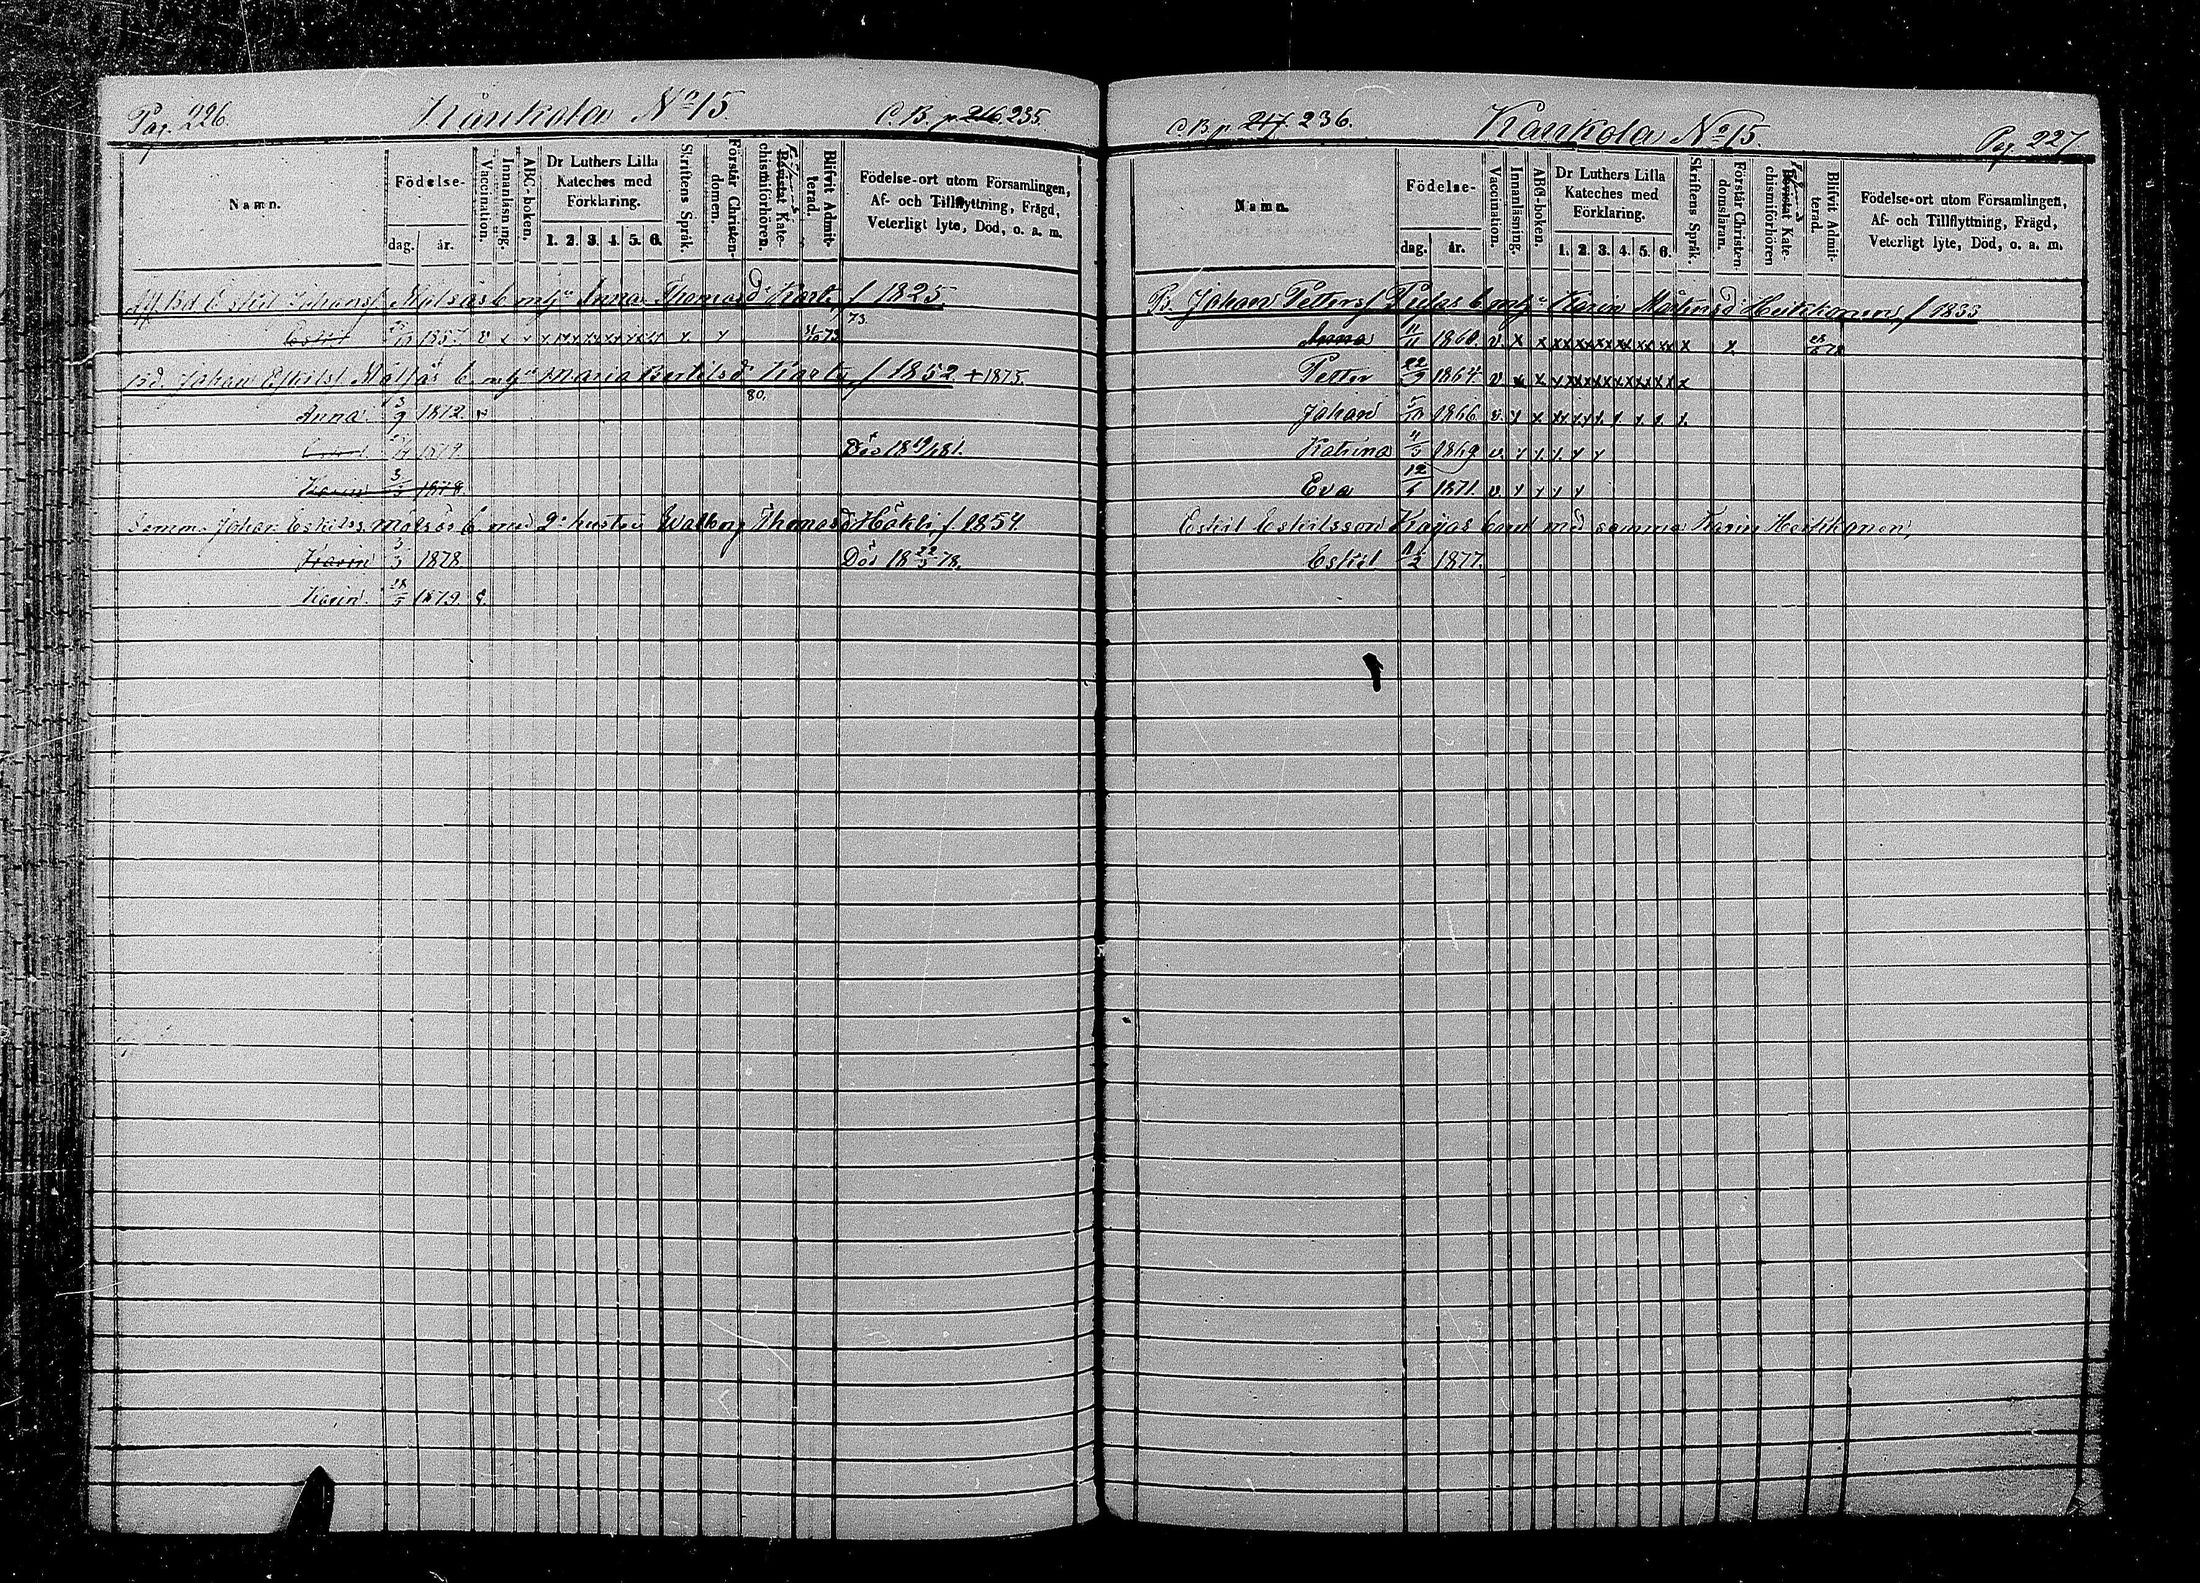 Pag. 226. Kaukola No 15 C. B. p. 216. 235.
Namn. Födelse- dag. år. Vaccination. Innanläsning. ABC-boken. Dr Luthers Lilla Kateches med Förklaring. 1. 2. 3. 4. 5. 6. Skriftens Språk. Förstår Christendomen. Bevistat Katechismiförhören. Blifvit Admitterad. Födelse-ort utom Församlingen, Af- och Tillflyttning, Frägd, Veterligt lyte, Död, o. a. m.
Bd Eskil Johans. Mälsäs b. m. Anna Thomasd Karts f 1825
Eskil 1857. v x x
73.
Bd. Johan Eskils. b. m. Maria Bertilsd Karts f 1852 + 1875.
80.
Anna 3/9 1872. v
Död 18 19/1 81.
Karin 3/3 1878.
Johan Eskilss. Mälsäs b. med 2a hustru Walborg Thomasd Häkli, f. 1854.
Karin 3/3 1878 Död 18 22/5 78.
Karin 28/5 1879. v.
C. B. p. 217. 236. Kaukola No 15. Pag. 227
Namn. Födelse- dag. år. Vaccination. Innanläsning. ABC-boken. Dr Luthers Lilla Kateches med Förklaring. 1. 2. 3. 4. 5. 6. Skriftens Språk. Förstår Christendomsläran. Bevistat Katechismiförhören Blifvit Admitterad. Födelse-ort utom Församlingen, Af- och Tillflyttning, Frägd, Veterligt lyte, Död, o. a. m.
B. Johan Petters. b. m. Karin Mårtensd Heikkanen, f 1833
Anna 11/11 1860. v. x x xx xx xx xx xx xx x x. 78
Petter 22/9 1864. v x x x xx xx xx xx xx x x
Johan 5/10 1866 v. x x xx xx x. x. x. x. x.
Katrina 11/3 1869 v. x x. x. x x
Eva 12/6 1871. v x x x x
Eskil Eskilsson Kojas b. med samma Karin Heikkanen,
Eskil 11/2 1877.